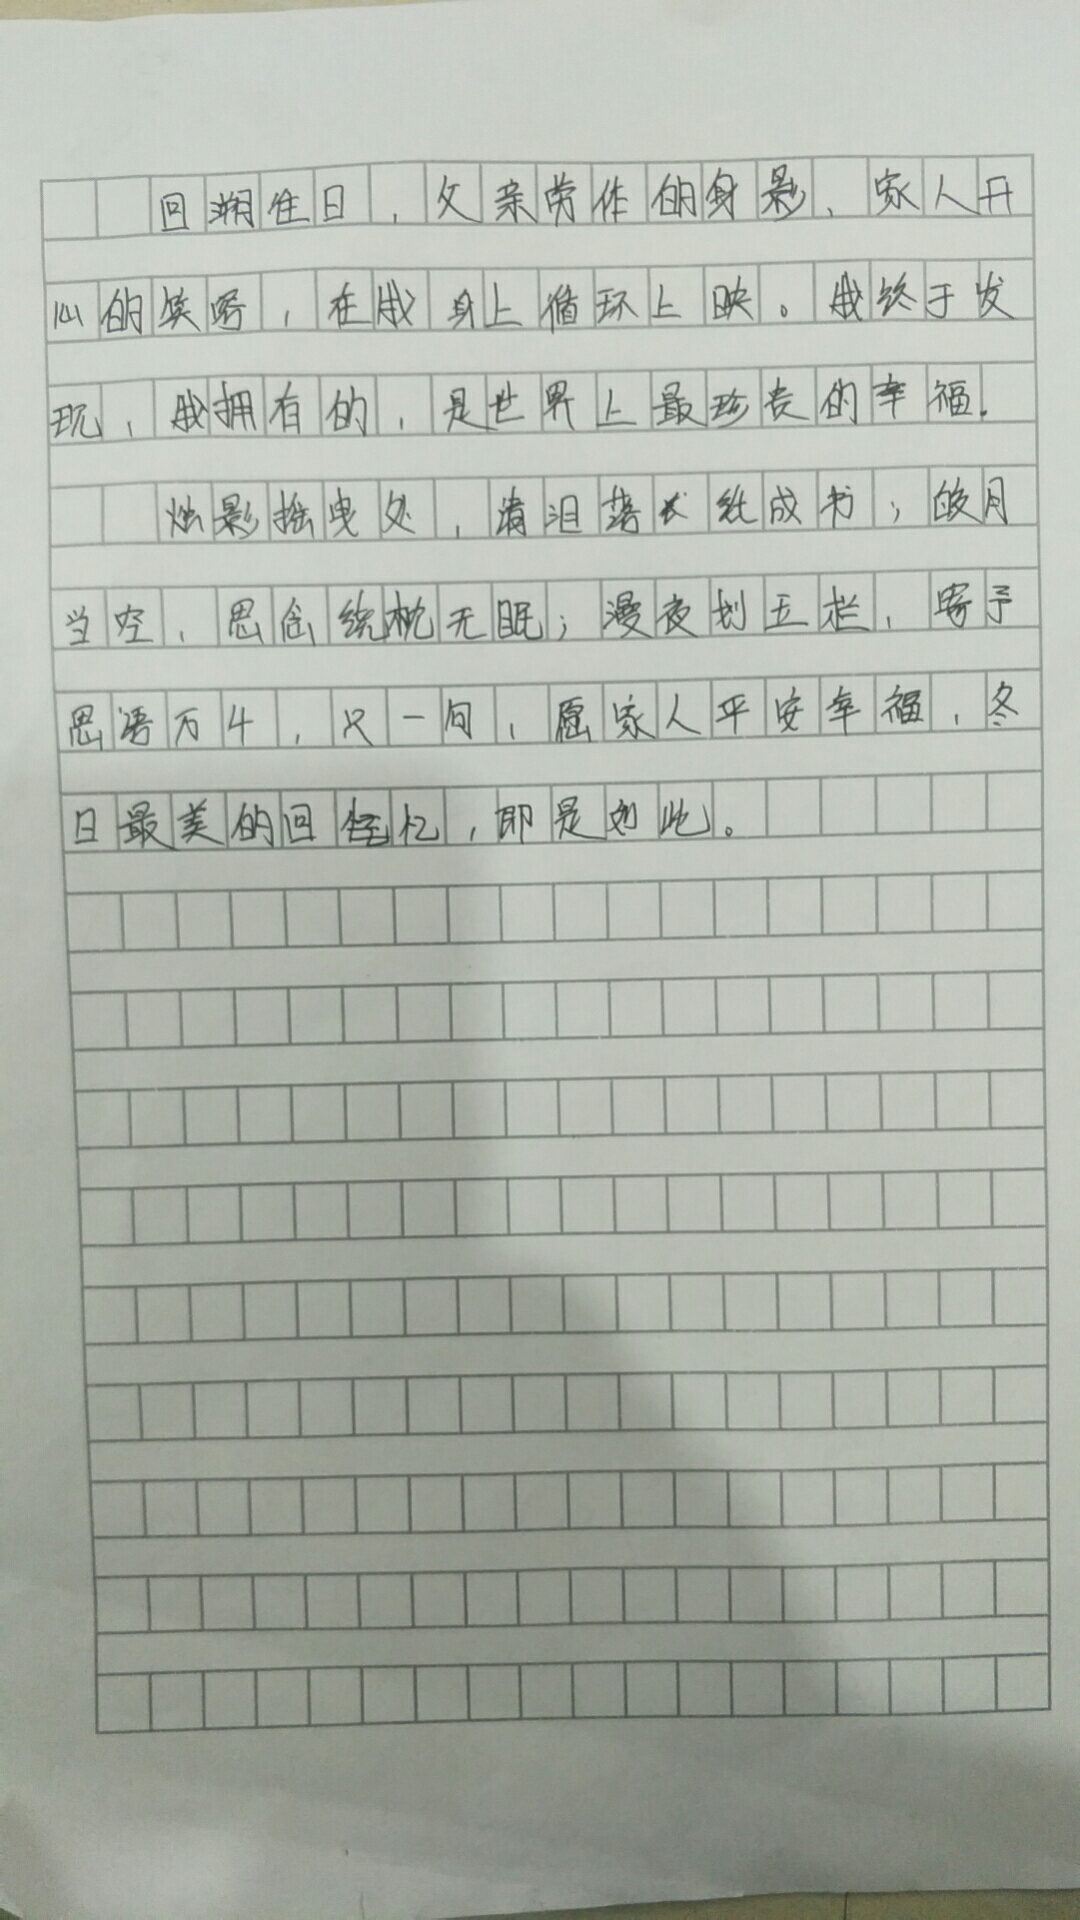 回溯往日，父亲劳作的身影、家人开
心的笑容，在我身上循环上映。我终于发
现，我拥有的，是世界上最珍贵的幸福.
烛影摇曳处，清泪落纸成书；皎月
当空，思念绕枕无眠；漫夜划五栏，寄予
思语万千，只一句，愿家人平安幸福，冬
日最美的回忆，即是如此。